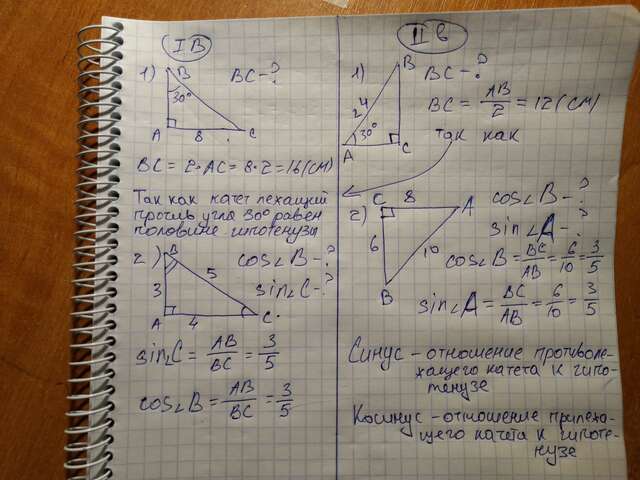 I В
1) B
BC - ?
30°
A 8 C
BC = 2·AC = 8·2 = 16 (СМ)
Так как катет лежащий
против угла 30° равен
половине гипотенузы
2) B
cos∠B - ?
5
sin∠C - ?
3
A 4 C
sin∠C = AB/BC = 3/5
cos∠B = AB/BC = 3/5
II в
1) B
BC - ?
24
BC = AB/2 = 12 (СМ)
30°
A C
так как
2) C 8 A
cos∠B - ?
sin∠A - ?
6 10
B
cos∠B = BC/AB = 6/10 = 3/5
sin∠A = BC/AB = 6/10 = 3/5
Синус - отношение противоле-
жащего катета к гипо-
тенузе
Косинус - отношение прилежа-
щего катета к гипоте-
нузе